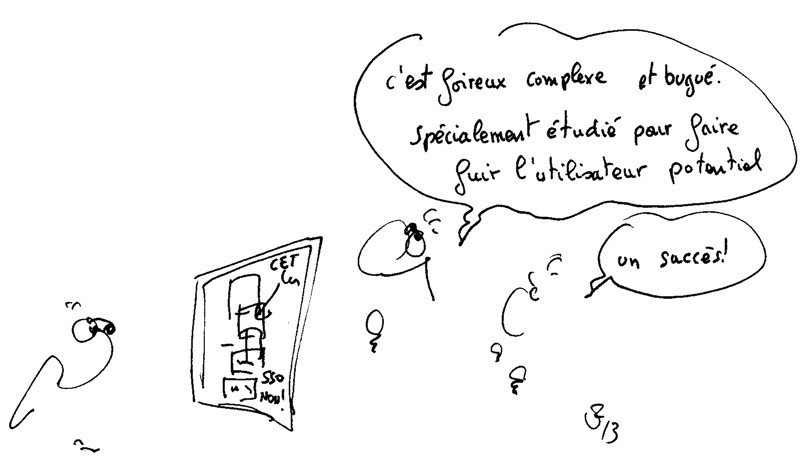 c'est foireux complexe et bugué.
spécialement étudié pour faire
fuir l'utilisateur potentiel
un succès!
CET
SSO
NON!